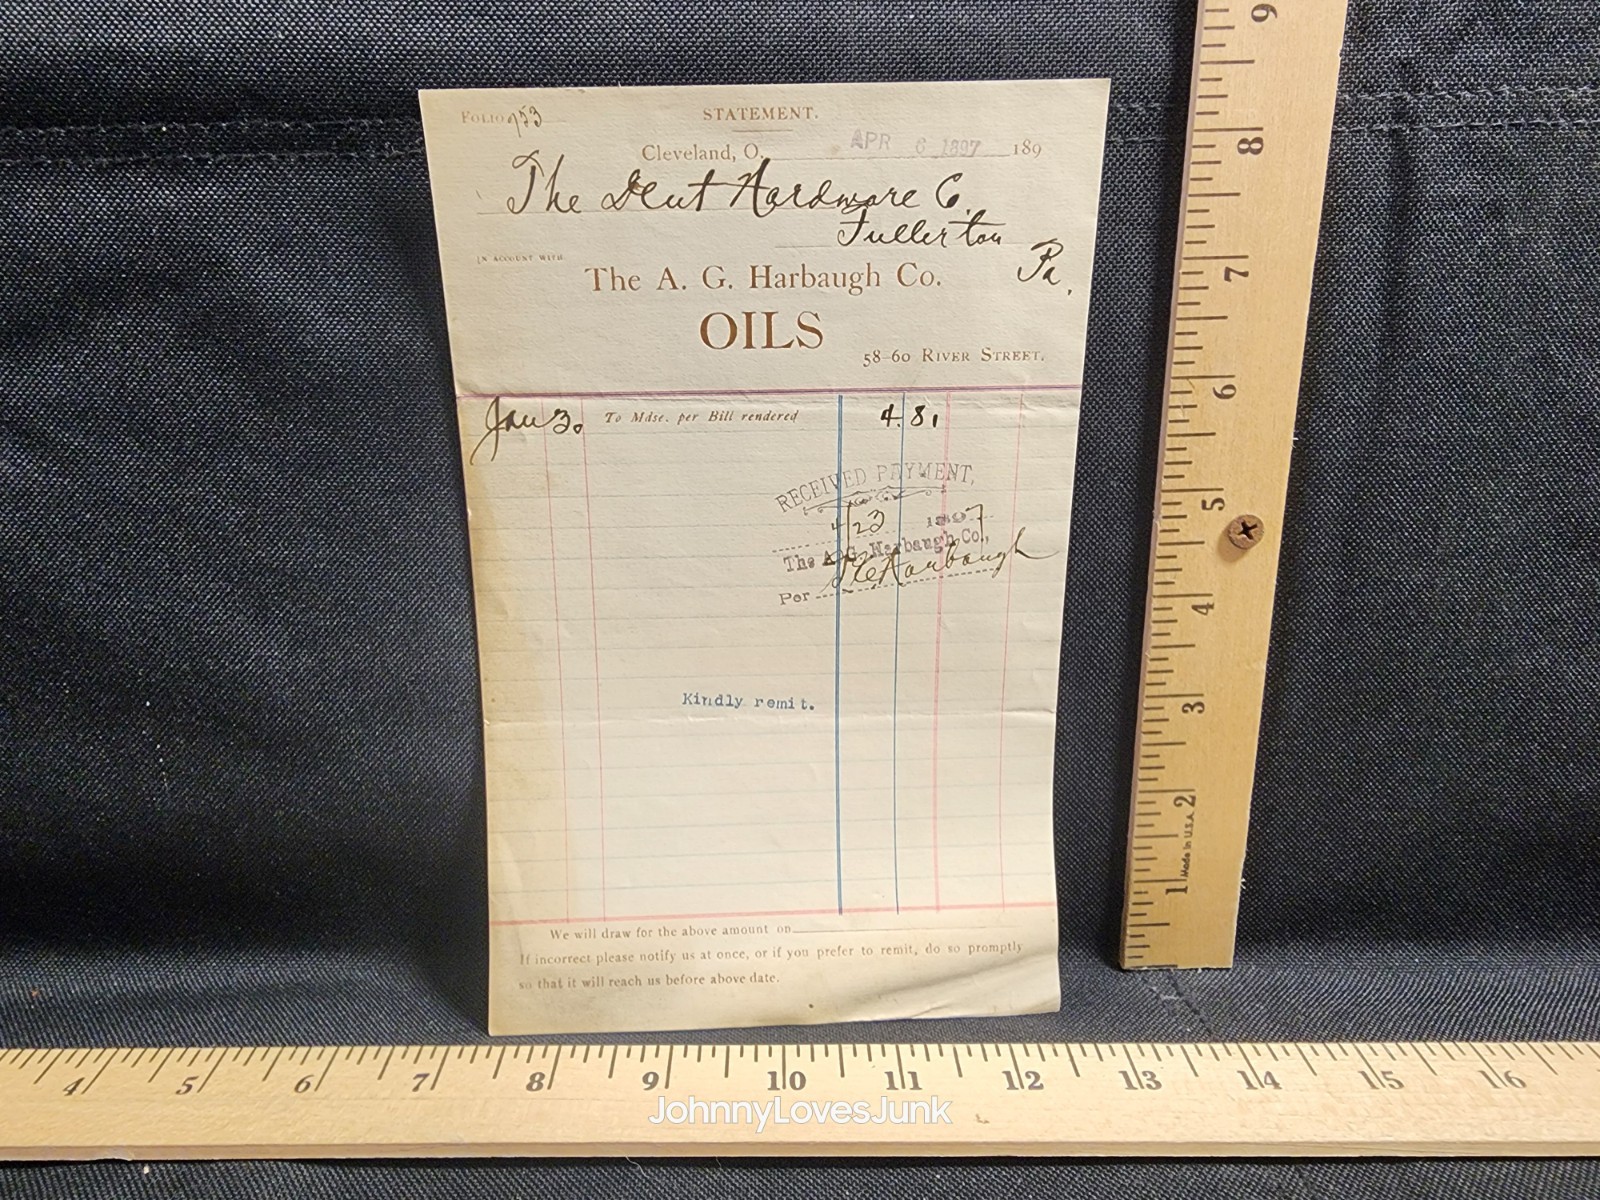 FOLIO 953
STATEMENT.
Cleveland, O. APR 6 1897 189
The Dent Hardware Co.
Fullerton
Pa.
IN ACCOUNT WITH
The A. G. Harbaugh Co.
OILS
58-60 RIVER STREET.
Jan 30 To Mdse. per Bill rendered 4.81
RECEIVED PAYMENT,
4/23 1897
The A. G. Harbaugh Co.,
Per Harbaugh
Kindly remit.
We will draw for the above amount on
If incorrect please notify us at once, or if you prefer to remit, do so promptly
so that it will reach us before above date.
9
8
7
6
5
4
3
2
1
Made in U.S.A.
4 5 6 7 8 9 10 11 12 13 14 15 16
JohnnyLovesJunk